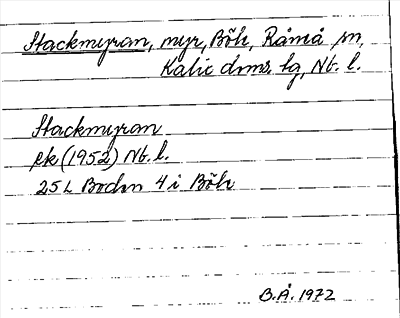 Stackmyran, myr, Böh, Råneå sn,
Kalix dms. tg, Nb. l.
Stackmyran
ek (1952) Nb. l.
25 L Boden 4 i Böh
B.Å. 1972